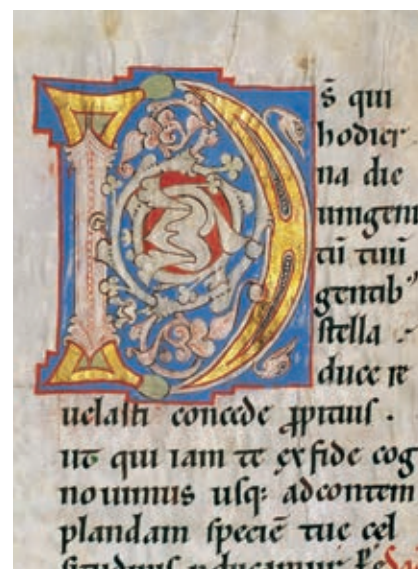 D
s̄ qui
hodier
na die
unigeni
tū tuū
gentib᷒
stella
duce re
uelasti concede ꝓpitius .
ut qui iam te ex fide cog
nouimus usq: adcontem
plandam speciē tue cel
situdinis ducamur